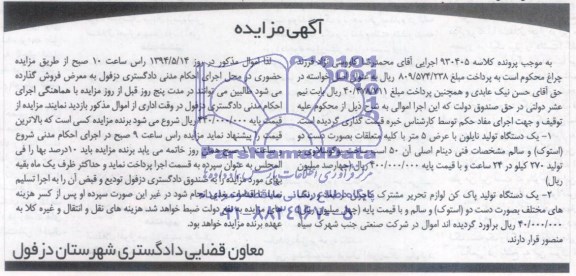 آگهی مزایده
به موجب پرونده کلاسه ۹۳۰۴۰۵ اجرایی آقای محمود کاووسی نژاد فرزند
چراغ محکوم است به پرداخت مبلغ ۸۰۹/۵۷۴/۲۳۸ ریال به عنوان اصل خواسته در
حق آقای حسن نیک عابدی و همچنین پرداخت مبلغ ۴۰/۴۷۸/۷۱۱ ریال بابت نیم
عشر دولتی در حق صندوق دولت که این اجرا اموالی به شرح ذیل از محکوم علیه
توقیف و جهت اجرای مفاد حکم توسط کارشناس خبره قیمت گذاری گردیده است
۱- یک دستگاه تولید نایلون با عرض ۵ متر با کلیه متعلقات بصورت دست دو
(استوک) و سالم مشخصات فنی دینام اصلی آن ۵۰ اسب
تولید ۲۷۰ کیلو در ۲۴ ساعت و با قیمت پایه ۴۰۰/۰۰۰/۰۰۰ ریال (چهارصد میلیون
ریال)
۲- یک دستگاه تولید پاک کن لوازم تحریر مشترک
های مختلف بصورت دست دو (استوک) و سالم و با قیمت پایه (چهل میلیون ریال)
۴۰/۰۰۰/۰۰۰ ریال برآورد گردیده اند اموال در شرکت صنعتی جنب شهرک سپاه
منصور قرار دارند.
لذا اموال مذکور در روز ۱۳۹۴/۵/۱۴ راس ساعت ۱۰ صبح از طریق مزایده
حضوری در محل اجرای احکام مدنی دادگستری دزفول به معرض فروش گذارده
می شود طالبین می توانند در مدت پنج روز قبل از روز مزایده با هماهنگی اجرای
احکام مدنی دادگستری دزفول در وقت اداری از اموال مذکور بازدید نمایند. مزایده از
قیمت پایه ریال شروع می شود برنده مزایده کسی است که بالاترین
قیمت را پیشنهاد نماید مزایده راس ساعت ۹ صبح در اجرای احکام مدنی شروع
صبح همان روز خاتمه می یابد برنده مزایده باید ۱۰درصد بها را فی
المجلس به عنوان سپرده به قسمت اجرا پرداخت نماید و حداکثر ظرف یک ماه بقیه
بهای مورد مزایده را به صندوق دادگستری دزفول تودیع و قبض آن را به اجرا تسلیم
انجام شود در غیر این صورت سپرده او پس از کسر هزینه
های مزایده به نفع دولت ضبط خواهد شد. هزینه های نقل و انتقال و غیره کلا به
عهده برنده مزایده خواهد بود.
معاون قضایی دادگستری شهرستان دزفول
ParsNamadData
۰۲۱-۸۸۳۴۹۶۷۰-۵